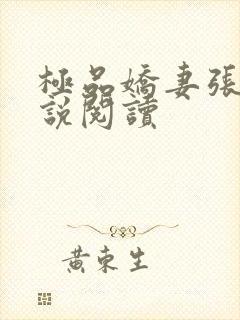 極品嬌妻張
說閱讀
黃東生